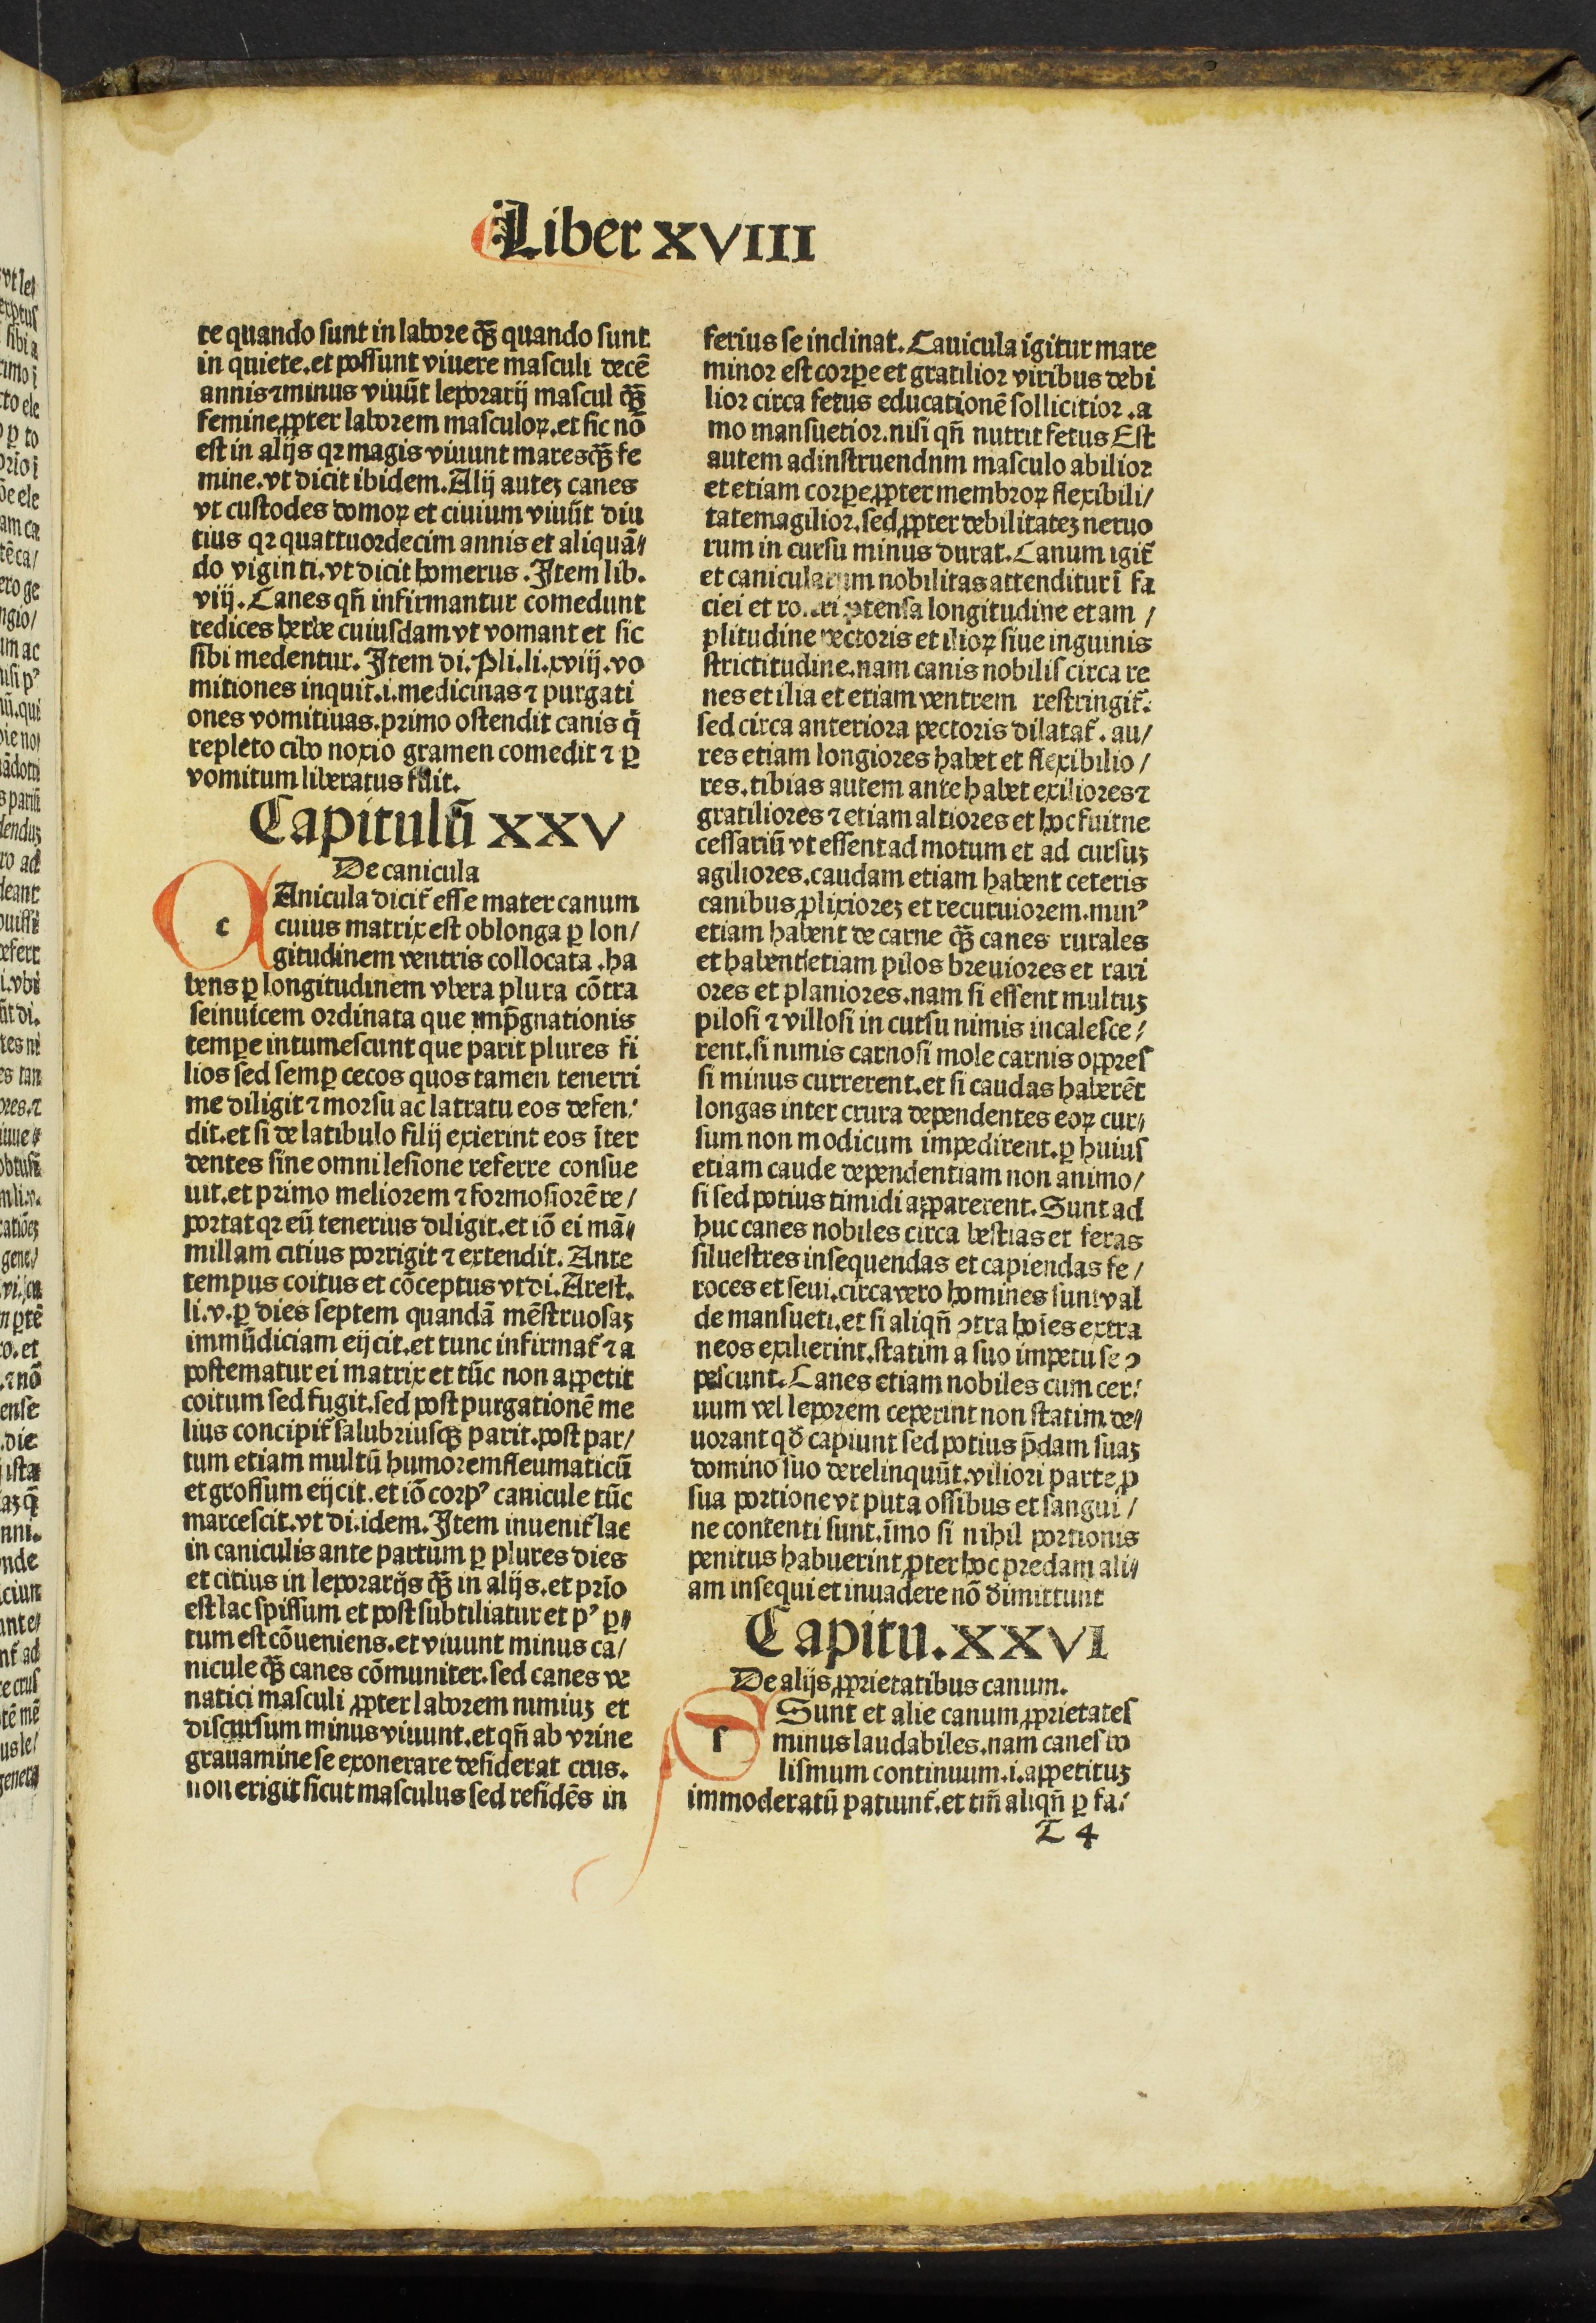 Liber XVIII
re quando sunt in labore q̄ꝫ quando sunt
in quiete.et possunt viuere masculi decē
annis ⁊ minus viuūt leporarij mascul q̄ꝫ
femine ꝓpter laborem masculoꝝ.et sic nō
est in alijs qꝛ magis viuunt mares q̄ꝫ fe
mine.vt dicit ibidem.Alij auteꝫ canes
vt custodes domoꝝ et ciuium viuūt diu
tius qꝛ quattuordecim annis et aliquā⸗
do viginti.vt dicit homerus.Item lib.
viij.Canes qn̄ infirmantur comedunt
redices herbe cuiusdam vt vomant et sic
sibi medentur.Item di.Pli.li.xviij.vo
mitiones inquit.i.medicinas ⁊ purgati
ones vomitiuas.primo ostendit canis q̄
repleto cibo noxio gramen comedit ⁊ ꝑ
vomitum liberatus fuit.
Capitulū XXV
De canicula
c
Anicula dicit̄ esse mater canum
cuius matrix est oblonga ꝑ lon/
gitudinem ventris collocata.ha
bens ꝑ longitudinem vbera plura cōtra
seinuicem ordinata que imp̄gnationis
tempe intumescunt que parit plures fi
lios sed semꝑ cecos quos tamen tenerri
me diligit ⁊ morsu ac latratu eos defen⸗
dit.et si de latibulo filij exierint eos īter
dentes sine omni lesione referre consue
uit.et primo meliorem ⁊ formosiorē re/
portat qꝛ eū tenerius diligit.et iō ei mā⸗
millam citius porrigit ⁊ extendit.Ante
tempus coitus et cōceptus vt di.Arest.
li.v.ꝑ dies septem quandā mēstruosaꝫ
immūdiciam eijcit.et tunc infirmat̄ ⁊ a
postematur ei matrix et tūc non appetit
coitum sed fugit.sed post purgationē me
lius concipit̄ salubriusqꝫ parit.post par/
tum etiam multū humorem fleumaticū
et grossum eijcit.et iō corpꝰ canicule tūc
marcescit.vt di.idem.Item inuenit̄ lac
in caniculis ante partum ꝑ plures dies
et citius in leporarijs q̄ꝫ in alijs.et prīo
est lac spissum et post subtiliatur et pꝰ ꝑ⸗
tum est cōueniens.et viuunt minus ca/
nicule q̄ꝫ canes cōmuniter.sed canes ve
natici masculi ꝓpter laborem nimiuꝫ et
discursum minus viuunt.et qn̄ ab vrine
grauamine se exonerare desiderat crus.
non erigit sicut masculus sed residēs in
ferius se inclinat.Canicula igitur mare
minor est corpe et gratilior viribus debi
lior circa fetus educationē sollicitior.a
mo mansuetior.nisi qn̄ nutrit fetus Est
autem ad instruendnm masculo abilior
et etiam corpe ꝓpter membroꝝ flexibili/
tatem agilior.sed ꝓpter debilitateꝫ neruo
rum in cursu minus durat.Canum igit̄
et canicularum nobilitas attenditur ī fa
ciei et ptensa longitudine et am /
plitudine pectoris et ilioꝝ siue inguinis
strictitudine.nam canis nobilis circa re
nes et ilia et etiam ventrem restringit̄.
sed circa anteriora pectoris dilatat̄.au/
res etiam longiores habet et flexibilio/
res.tibias autem ante habet exiliores ⁊
gratiliores ⁊ etiam altiores et hoc fuit ne
cessariū vt essent ad motum et ad cursuꝫ
agiliores.caudam etiam habent ceteris
canibus ꝓlixioreꝫ et recuruiorem.minꝰ
etiam habent de carne q̄ꝫ canes rurales
et habent etiam pilos breuiores et rari
ores et planiores.nam si essent multuꝫ
pilosi ⁊ villosi in cursu nimis incalesce⸗
rent.si nimis carnosi mole carnis oppres
si minus currerent.et si caudas haberēt
longas inter crura dependentes eoꝝ cur⸗
sum non modicum impedirent.ꝑ huius
etiam caude dependentiam non animo/
si sed potius timidi apparerent.Sunt ad
huc canes nobiles circa bestias et feras
siluestres insequendas et capiendas fe/
roces et seui.circa vero homines sunt val
de mansueti.et si aliqn̄ ↄtra hoīes extra
neos exilierint.statim a suo impetu se ↄ
pescunt.Canes etiam nobiles cum cer⸗
uum vel leporem ceperint non statim de⸗
uorant qd̄ capiunt sed potius p̄dam suaꝫ
domino suo derelinquūt.viliori parte ꝓ
sua portione vt puta ossibus et sangui/
ne contenti sunt.īmo si nihil portionis
penitus habuerint ꝓpter hoc predam ali⸗
am insequi et inuadere nō dimittunt
Capitu.XXVI
De alijs ꝓprietatibus canum.
s
Sunt et alie canum ꝓprietates
minus laudabiles.nam canes bo
lismum continuum.i.appetituꝫ
immoderatū patiunt̄.et tn̄ aliqn̄ ꝑ fa⸗
T 4